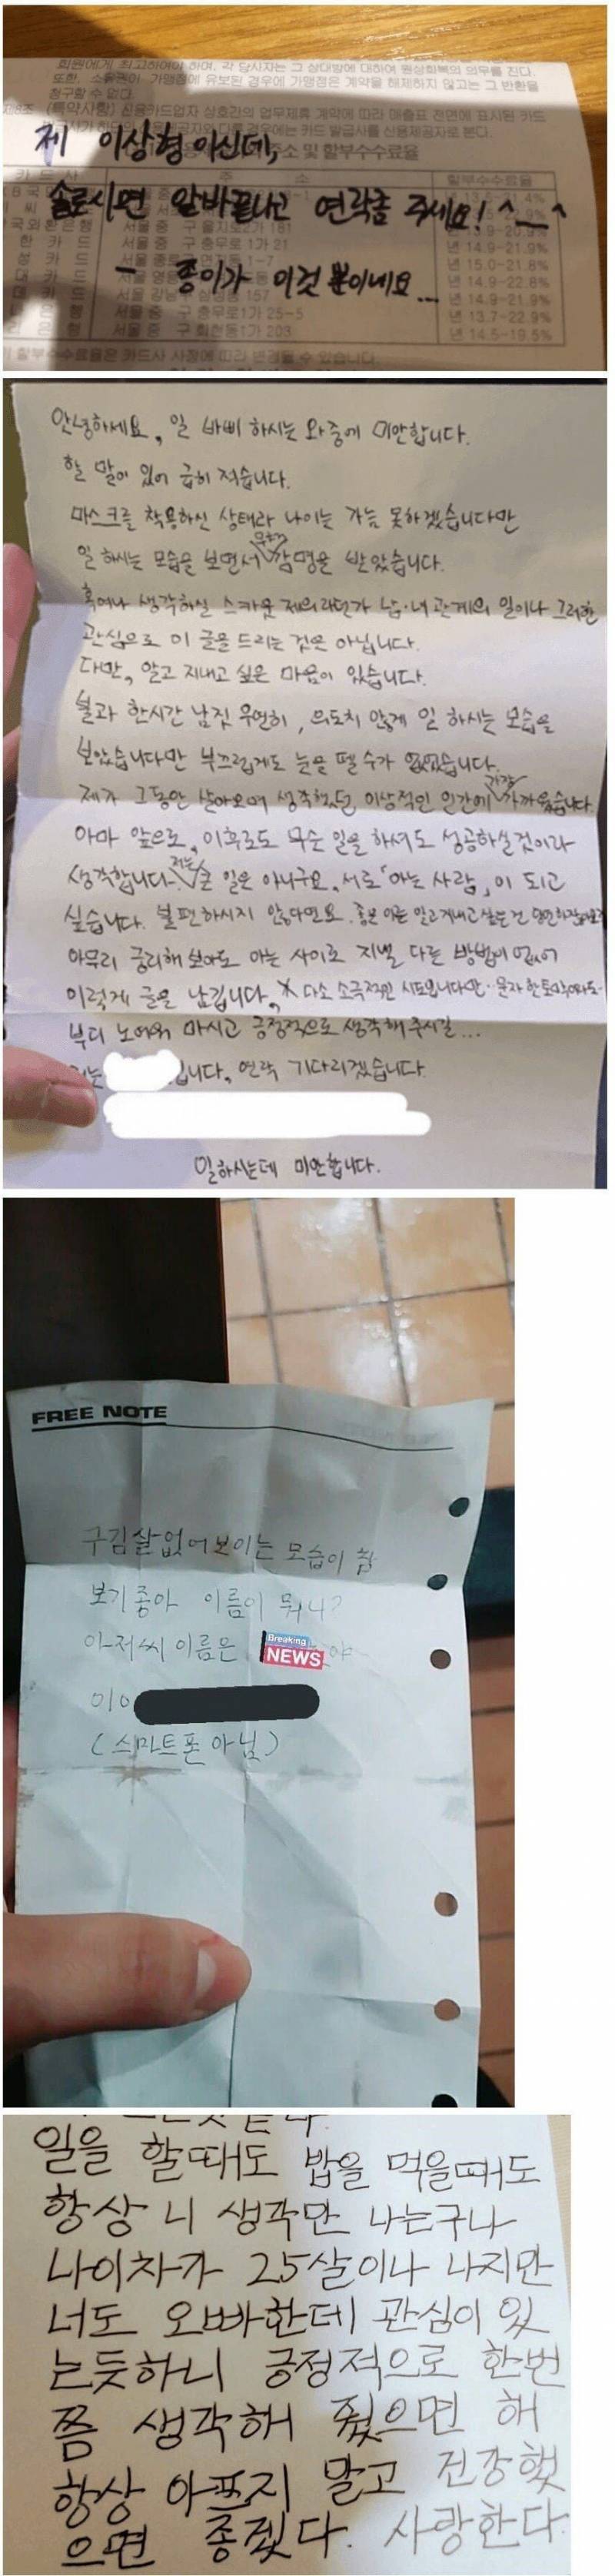 회원에게 최고하여야 하며, 각 당사자는 그 상대방에 대하여 원상회복의 의무를 진다.
또한, 소유권이 가맹점에 유보된 경우에 가맹점은 계약을 해제하지 않고는 그 반환을
청구할 수 없다.
(특약사항) 신용카드업자 상호간의 업무제휴 계약에 따라 매출표 전면에 표시된 카드
경우에는 카드 발급사를 신용제공자로 본다.
주소 및 할부수수료율
제 이상형 아신데,
카 드 사 주 소 할부수수료율
솔로시면 알바끝나고 연락좀 주세요! ^_^
서울 중 구 을지로2가 181
한 카 드 서울 중 구 충무로 1가 21 년 14.9~21.9%
성 카 드 년 15.0~21.8%
- 종이가 이것 뿐이네요...
대 카 드 년 14.9~22.8%
데 카 드 157 년 14.9~21.9%
은 행 서울 중 구 충무로1가 25-5 년 13.7~22.9%
은 행 서울 중 구 회현동1가 203 년 14.5~19.5%
할부수수료율은 카드사 사정에 따라 변경될 수 있습니다.
안녕하세요, 일 바삐 하시는 와중에 미안합니다.
할 말이 있어 급히 적습니다.
마스크를 착용하신 상태라 나이는 가늠 못하겠습니다만
일 하시는 모습을 보면서 감명을 받았습니다.
혹여나 생각하실 스카웃 제의라던가 남·녀 관계의 일이나 그러한
관심으로 이 글을 드리는 것은 아닙니다.
다만, 알고 지내고 싶은 마음이 있습니다.
불과 한시간 남짓 우연히, 의도치 않게 일 하시는 모습을
보았습니다만 부끄럽게도 눈을 뗄 수가 없었습니다.
제가 그동안 살아오며 생각했던 이상적인 인간에 가장 가까웠습니다.
아마 앞으로, 이후로도 무슨 일을 하셔도 성공하실것이라
생각합니다. 저는 큰 일은 아니구요, 서로 「아는 사람」이 되고
싶습니다. 불편하시지 않다면요. 좋은 이는 알고지내고 싶은건
아무리 궁리해 보아도 아는 사이로 지낼 다른 방법이 없어
이렇게 글을 남깁니다. 다소 소극적인 시도입니다만.. 문자 한 토막이라도
부디 노여워 마시고 긍정적으로 생각해 주시길...
저는 입니다. 연락 기다리겠습니다.
일하시는데 미안합니다.
FREE NOTE
구김살없어보이는 모습이 참
보기좋아 이름이 뭐니?
아저씨 이름은 Breaking NEWS 야
010
(스마트폰 아님)
일을 할때도 밥을 먹을때도
항상 니 생각만 나는구나
나이차가 25살이나 나지만
너도 오빠한데 관심이 있
는듯하니 긍정적으로 한번
쯤 생각해 줬으면 해
항상 아프지 말고 건강했
으면 좋겠다. 사랑한다.